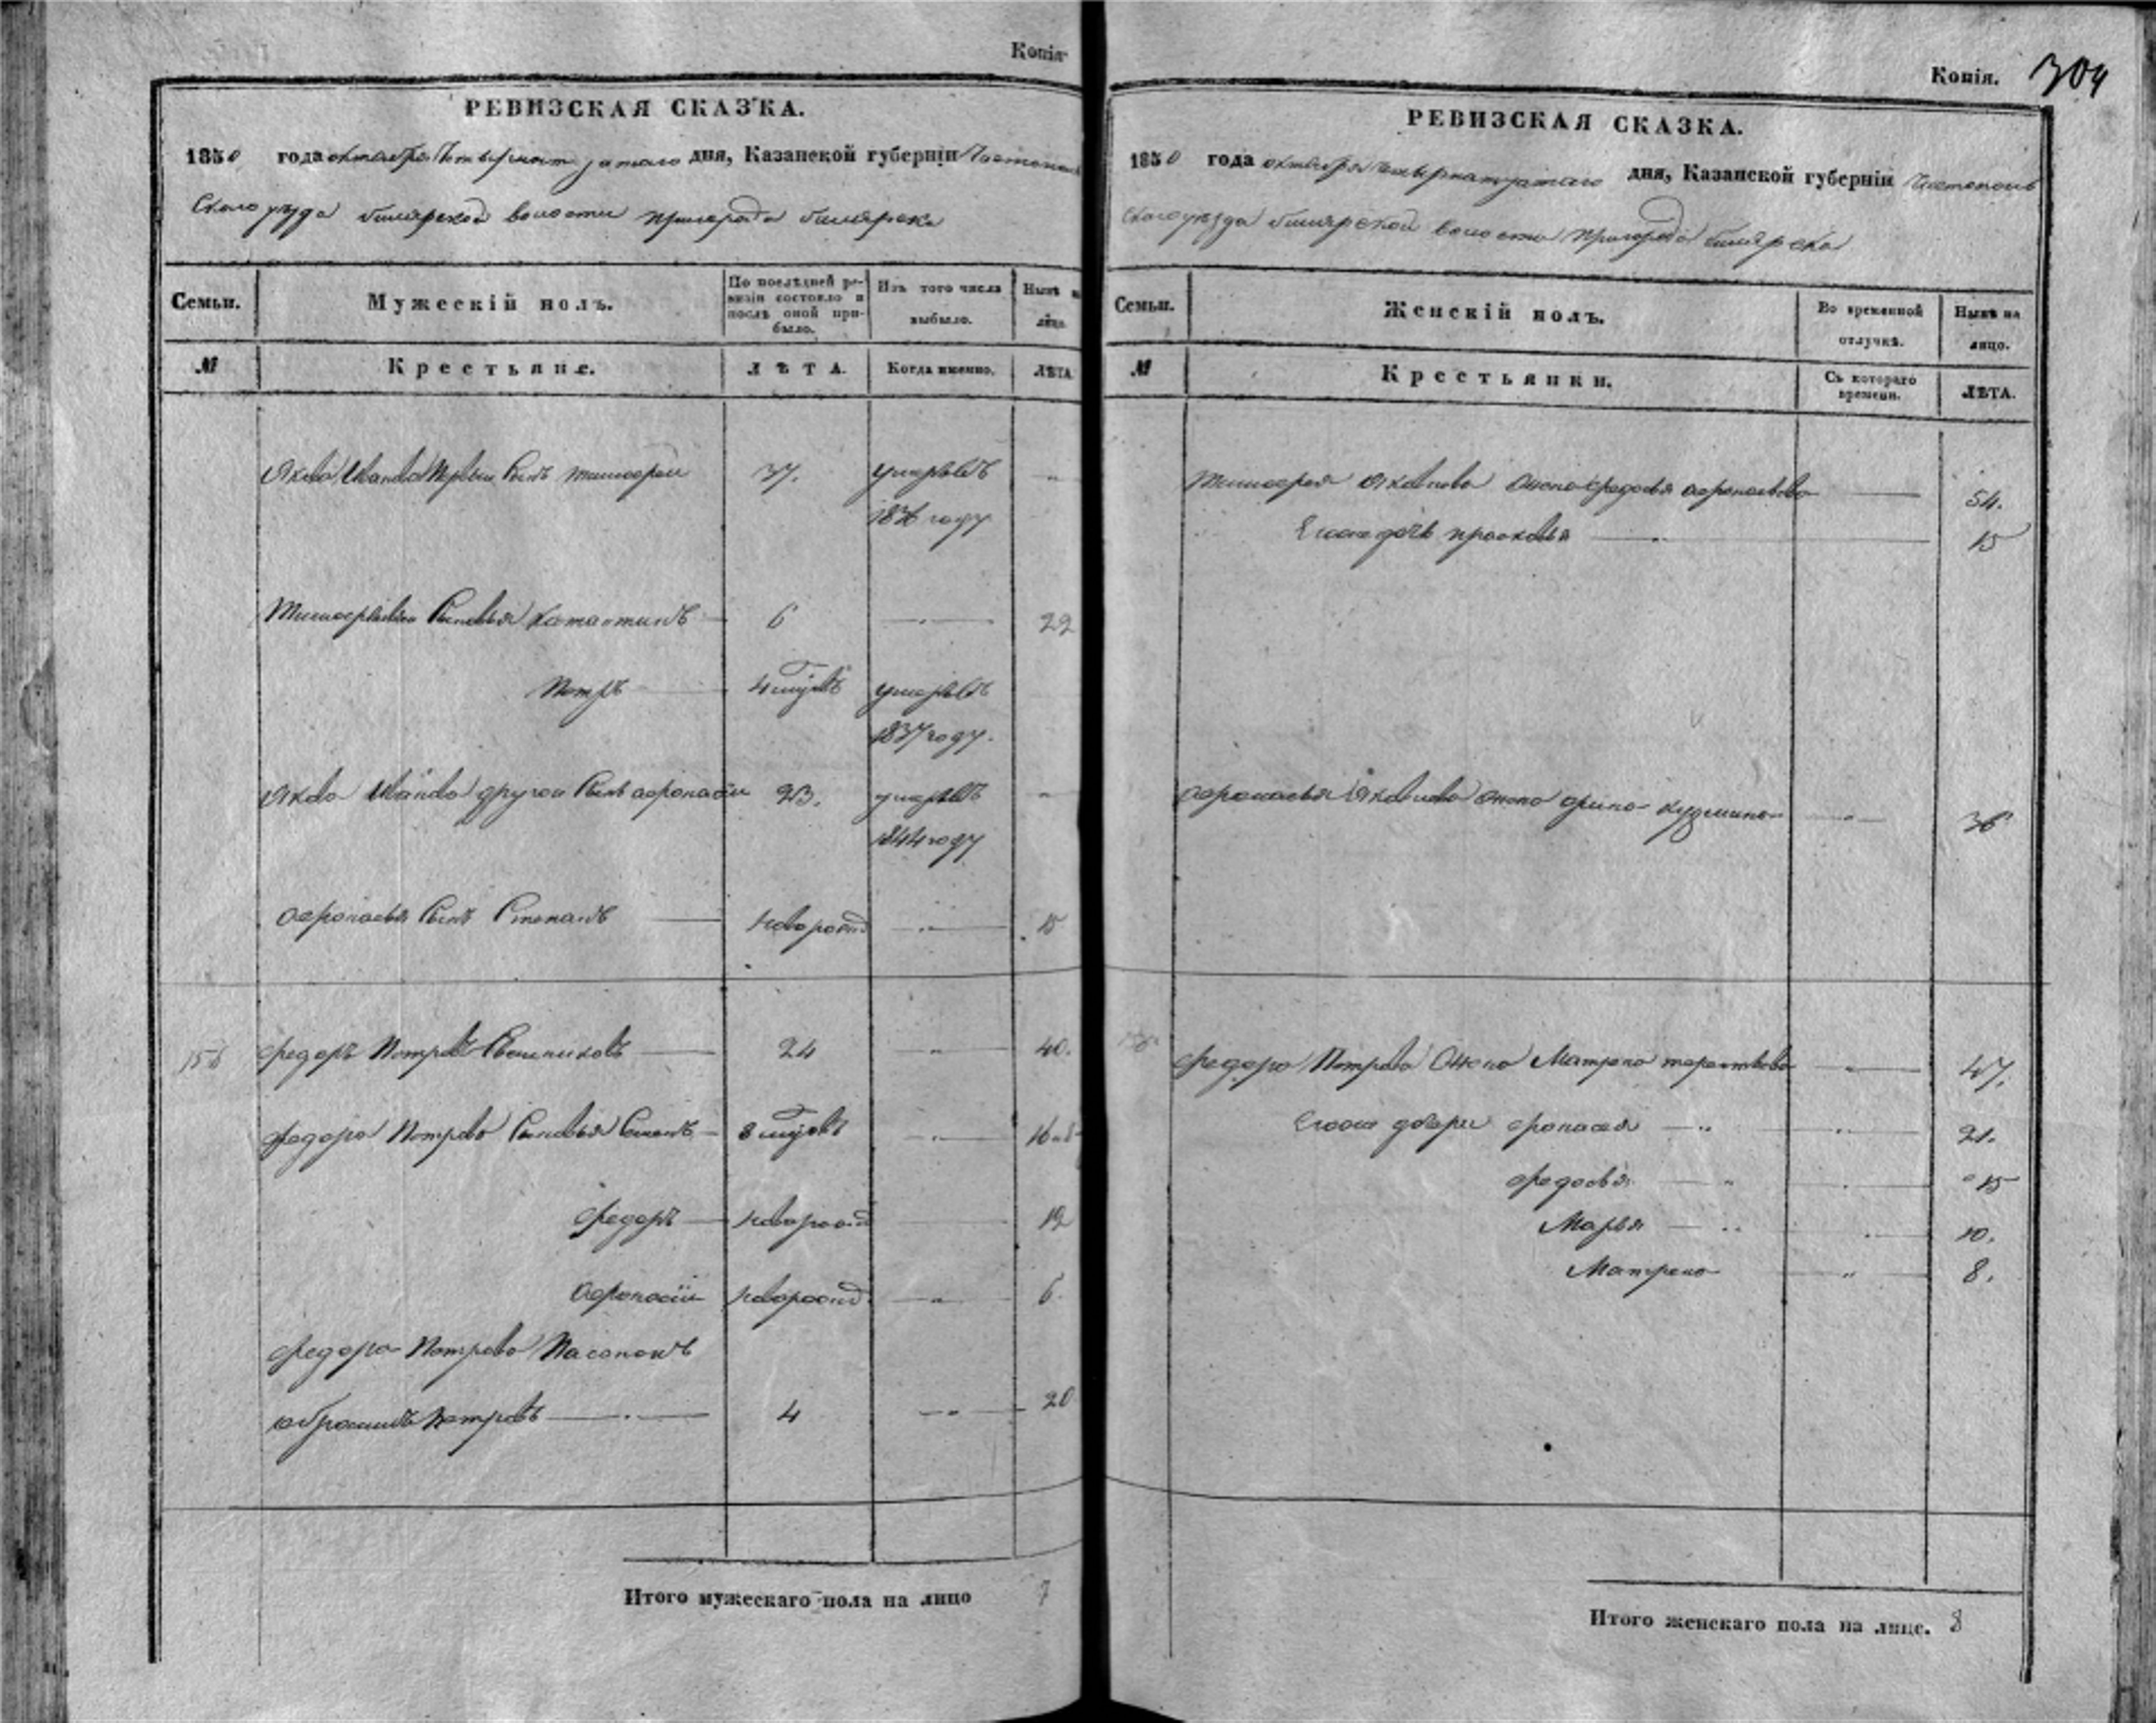 Копія
РЕВИЗСКАЯ СКАЗКА.
1850 года октября дня, Казанской губерніи Чистополь
скаго уезда билярской волости пригорода билярска
Семьи.
Мужескій полъ.
По послѣдней ре-
визіи состояло и
послѣ оной при-
было.
Изъ того числа
выбыло.
Нынѣ н
лицо
№
Крестьяне.
ЛѢТА.
Когда именно.
ЛѢТА
Якова Иванова первый сынъ тимофей 37. умеръ въ
1836 году
тимофеявы сыновья 6 22
петръ 4 умеръ въ
1837 году.
Якова Иванова другой сынъ афонасей 23. умеръ въ
1844 году
афонасья сынъ Степанъ новорожд 15
156 федоръ Петровъ 24 40.
федора Петрова сыновья Семенъ 8
федоръ новорожд 12
афонасій новорожд 6.
федора Петрова Пасонокъ
абрамъ петровъ 4 20
Итого мужескаго пола на лицо 7
Копія. 304
РЕВИЗСКАЯ СКАЗКА.
1850 года октября дня, Казанской губерніи Чистополь
скаго уезда билярской волости пригорода билярска
Семьи.
Женскій полъ.
Во временной
отлучкѣ.
Нынѣ на
лицо.
№
Крестьянки.
Съ котораго
времени.
ЛѢТА.
тимофея Яковлева жена федосья афонасьева 54.
Егоже дочь прасковья 15
афонасья Яковлева жена арина кузмина 36
156 федора Петрова жена Матрена 47.
Егоже дочери 21.
федосья 15
Марья 10.
Матрена 8.
Итого женскаго пола на лице. 8